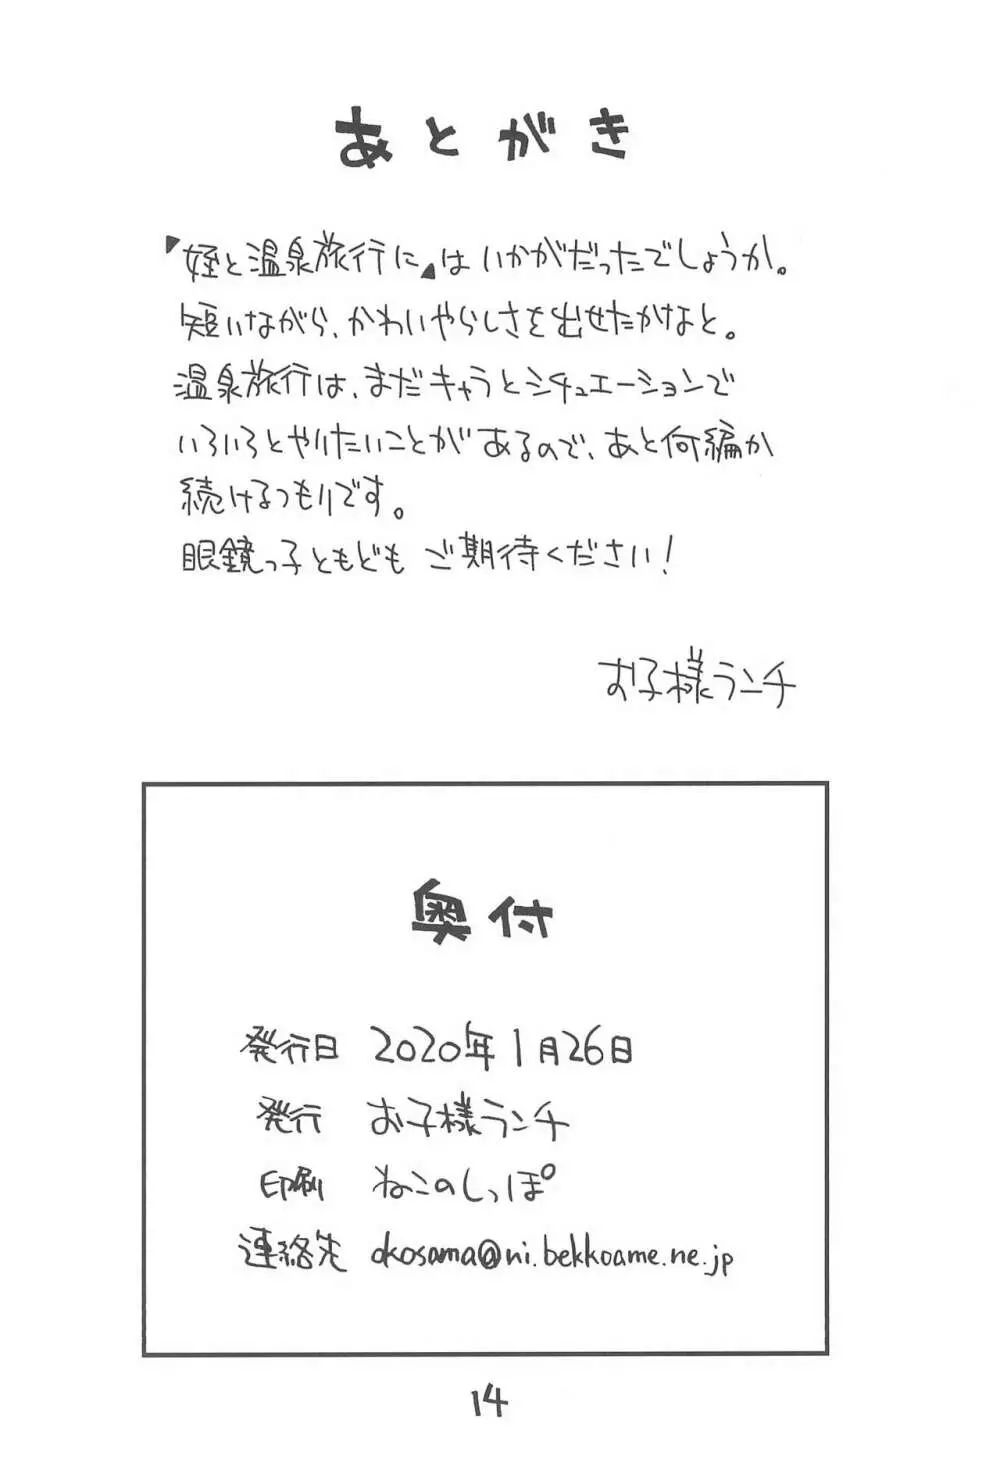 あとがき
『姪と温泉旅行に』はいかがだったでしょうか。
短いながら、かわいやらしさを出せたかなと。
温泉旅行は、まだキャラとシチュエーションで
いろいろとやりたいことがあるので、あと何編か
続けるつもりです。
眼鏡っ子ともども ご期待ください！
お子様ランチ
奥付
発行日 2020年1月26日
発行 お子様ランチ
印刷 ねこのしっぽ
連絡先 okosama@ni.bekkoame.ne.jp
14